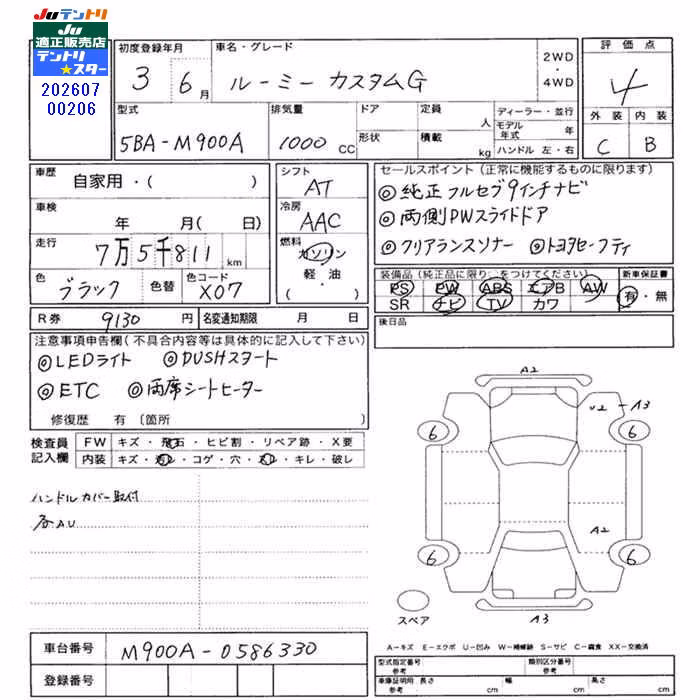 JUテントリ
JU
適正販売店
テントリ
★スター
202607
00206
初度登録年月
3 6月
車名・グレード
ルーミー カスタムG
2WD
・
4WD
評価点
4
外装 内装
C B
型式
5BA-M900A
排気量
1000 CC
ドア
形状
定員 人
積載 kg
ディーラー・並行
モデル年式 年
ハンドル 左・右
車歴
自家用・( )
車検
年 月( 日)
走行
7万5千811 km
色
ブラック
色替
色コード
X07
シフト
AT
冷房
AAC
燃料
ガソリン
軽・油
( ・ )
セールスポイント(正常に機能するものに限ります)
◎純正フルセグ9インチナビ
◎両側PWスライドドア
◎クリアランスソナー ◎トヨタセーフティ
装備品(純正品に限り○をつけてください) 新車保証書
PS PW ABS エアB AW
SR ナビ TV カワ
有・無
後日品
R券 9130 円 名変通知期限 月 日
注意事項申告欄(不具合内容等は具体的に記入して下さい)
◎LEDライト ◎PUSHスタート
◎ETC ◎両席シートヒーター
修復歴 有〔箇所 〕
検査員
記入欄
FW キズ・飛石・ヒビ割・リペア跡・X要
内装 キズ・汚レ・コゲ・穴・スレ・キレ・破レ
ハンドルカバー取付
各AU
A2
U2-A3
6 6
A2
6 6
A3
スペア
A-キズ E-エクボ U-凹み W-補修跡 S-サビ C-腐食 XX-交換済
車台番号 M900A-0586330
登録番号
型式指定番号 参考
類別区分番号 参考
車庫証明用 参考 長さ cm 幅 cm 高さ cm